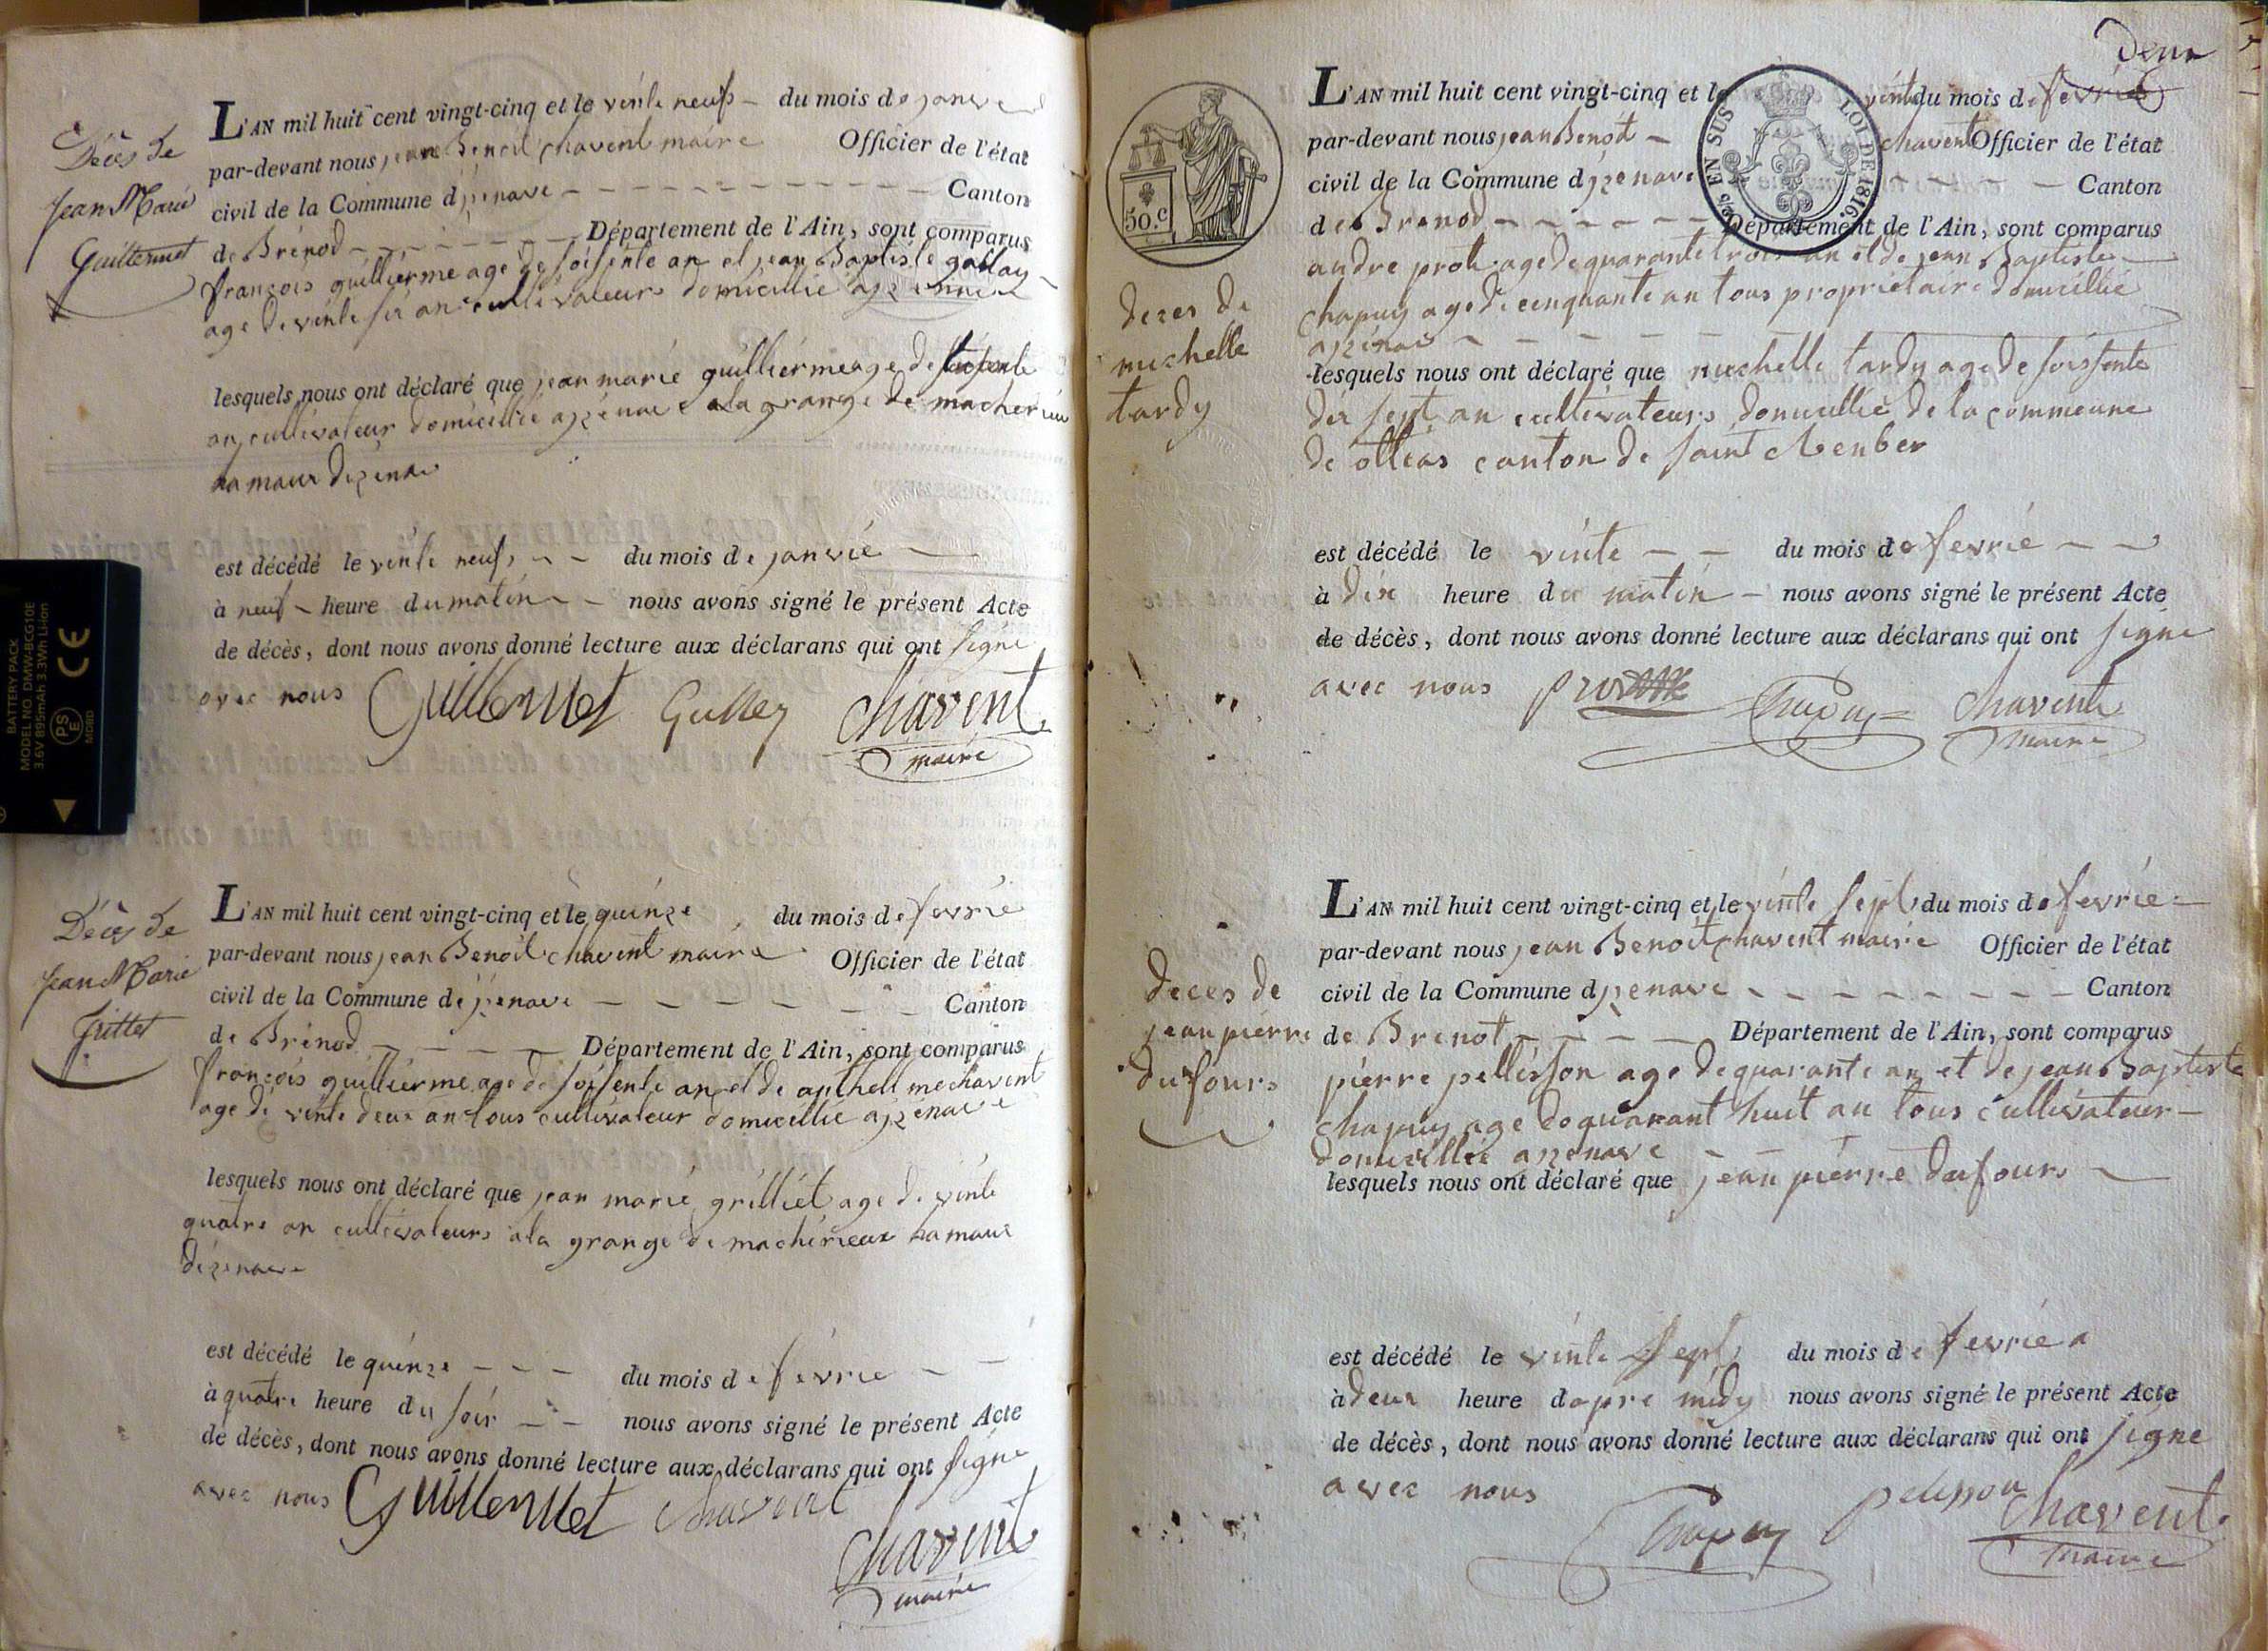 Décès de
Jean Marie
Guillermet
L'AN mil huit cent vingt-cinq et le vinte neufs du mois de janvie
par-devant nous jean Benoit chavent maire Officier de l'état
civil de la Commune d izenave Canton
de Brénod Département de l'Ain, sont comparus
françois guillierme age de soisente an et jean Baptiste gallay
age de vinte sis an cultivateurs domicillié a izenave
lesquels nous ont déclaré que jean marie guillierme age de
an cultivateur domicillié a izenave a la grange de macherieu
hamaux dizenave
est décédé le vinte neufs du mois de janvié
à neuf heure du matin nous avons signé le présent Acte
de décès, dont nous avons donné lecture aux déclarans qui ont signe
avec nous Guillermet Galley chavent
maire
Décès de
Jean Marie
L'AN mil huit cent vingt-cinq et le quinze du mois de fevrié
par-devant nous jean Benoit chavent maire Officier de l'état
civil de la Commune de izenave Canton
de Brénod Département de l'Ain, sont comparus
françois guillierme age de soisente an et de chavent
age de vinte deux an tous cultivateur domicillié a izenave
lesquels nous ont déclaré que jean marie grilliet age de vinte
quatre an cultivateurs a la grange de macherieux hamaux
dizenave
est décédé le quinze du mois de fevrie
à quatre heure du soir nous avons signé le présent Acte
de décès, dont nous avons donné lecture aux déclarans qui ont signe
avec nous Guillermet chavent
chavent
maire
BATTERY PACK
MODEL NO. DMW-BCG10E
3.6V 895mAh 3.3Wh Li-ion
CE
PS
E
MOBD
deux
50.c
EN SUS
LOI DE 1816.
L'AN mil huit cent vingt-cinq et le vinte du mois de fevrié
par-devant nous jean Benoit chavent Officier de l'état
civil de la Commune d izenave Canton
de Brenod Département de l'Ain, sont comparus
andre prost age de quarante trois an et de jean Baptiste
chapuy age de cinquante an tous propriétaire domicillié
a izenave
deces de
michelle
tardy
lesquels nous ont déclaré que michelle tardy age de soissente
dix sept an cultivateurs domicillié de la commeune
de canton de saint
est décédé le vinte du mois de fevrié
à dix heure du matin nous avons signé le présent Acte
de décès, dont nous avons donné lecture aux déclarans qui ont signe
avec nous Chapuy chavent
maire
deces de
jean pierre
dufours
L'AN mil huit cent vingt-cinq et le vinte sept du mois de fevrié
par-devant nous jean Benoit chavent maire Officier de l'état
civil de la Commune d izenave Canton
de Brenot Département de l'Ain, sont comparus
pierre pellisson age de quarante an et de jean Baptiste
chapuy age de quarant huit an tous cultivateur
domicillié a izenave
lesquels nous ont déclaré que jean pierre dufours
est décédé le vinte sept du mois de fevrié a
à deux heure dapre midy nous avons signé le présent Acte
de décès, dont nous avons donné lecture aux déclarans qui ont signe
avec nous Chapuy pelisson chavent
maire